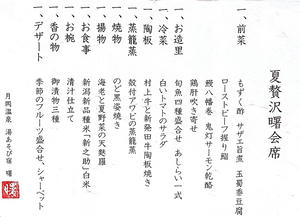 夏贅沢 曙会席
一、前菜
もずく酢 サザエ旨煮 玉蜀黍豆腐
ローストビーフ握り鮨
鰻八幡巻 鬼灯サーモン乾酪
鶏肝吹き寄せ
一、お造里
旬魚四種盛合せ あしらい一式
一、冷菜
白いトマトのサラダ
一、陶板
村上牛と新発田牛陶板焼き
一、蒸籠蒸
殻付アワビの蒸籠蒸
一、焼物
のど黒姿焼き
一、揚物
海老と夏野菜の天麩羅
一、お食事
新潟新品種米「新之助」白米
一、お椀
清汁仕立て
一、香の物
御漬物三種
一、デザート
季節のフルーツ盛合せ、シャーベット
月岡温泉 湯あそび宿 曙
曙